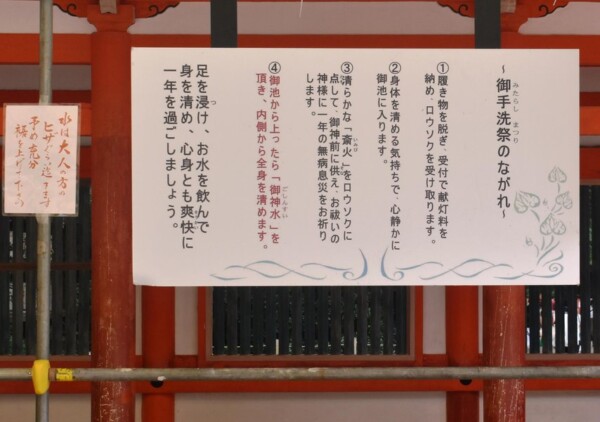 ~御手洗祭のながれ~
みたらし まつり
①履き物を脱ぎ、受付で献灯料を
納め、ロウソクを受け取ります。
②身体を清める気持ちで、心静かに
御池に入ります。
③清らかな「斎火」をロウソクに
いみび
点して、御神前に供え、お祓いの
神様に一年の無病息災をお祈り
します。
④御池から上ったら「御神水」を
ごしんすい
頂き、内側から全身を清めます。
足を浸け、お水を飲んで
つ
身を清め、心身とも爽快に
一年を過ごしましょう。
水は大人の方の
ヒザぐらい迄きます
予め充分
裾を上げて下さい